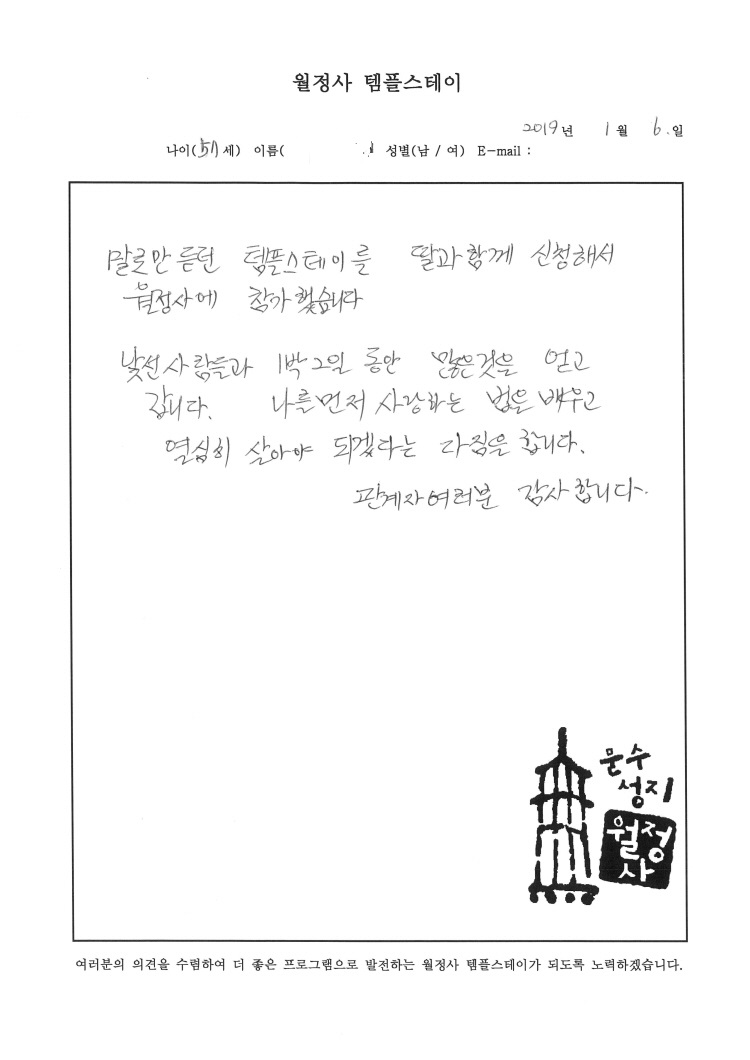 월정사 템플스테이
2019년 1월 6.일
나이(57세) 이름( 성별(남 / 여) E-mail :
말로만 듣던 템플스테이를 딸과 함께 신청해서
월정사에 참가 했습니다
낯선사람들과 1박2일 동안 많은것을 얻고
갑니다. 나를먼저 사랑하는 법을 배우고
열심히 살아야 되겠다는 다짐을 합니다.
관계자여러분 감사합니다.
문수
성지
월정
사
여러분의 의견을 수렴하여 더 좋은 프로그램으로 발전하는 월정사 템플스테이가 되도록 노력하겠습니다.